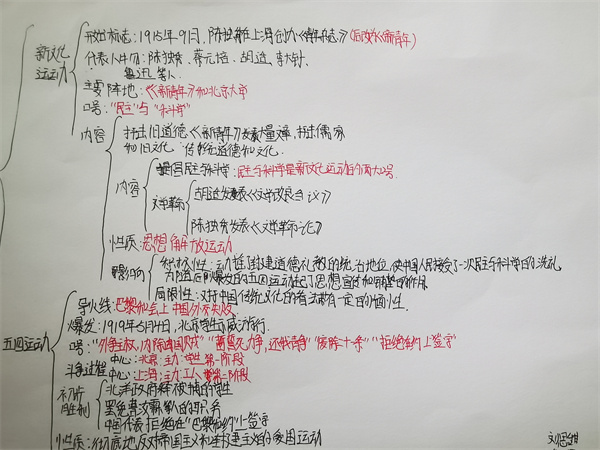 新文化运动
开始标志:1915年9月,陈独秀在上海创办《青年杂志》(后改为《新青年》)
代表人物:陈独秀、蔡元培、胡适、李大钊、
鲁迅等人
主要阵地:《新青年》和北京大学
口号:"民主"与"科学"
内容
打击旧道德《新青年》发表大量文章,抨击儒家
和旧文化 传播新道德和文化.
内容
提倡民主与科学:民主与科学是新文化运动的两大口号.
文学革命
胡适发表《文学改良刍议》
陈独秀发表《文学革命论》
性质:思想解放运动
影响
积极性:动摇封建道德礼教的统治地位,使中国人民接受了一次民主与科学的洗礼
为随后爆发的五四运动起了思想宣传和铺垫的作用
局限性:对待中国传统文化的看法都有一定的偏激性.
五四运动
导火线:巴黎和会上中国外交失败
爆发:1919年5月4日,北京学生示威游行.
口号:"外争主权,内除国贼" "誓死力争,还我青岛" "废除二十一条" "拒绝在和约上签字"
斗争过程
中心:北京 主力:学生 第一阶段
中心:上海 主力:工人 第二阶段
初步胜利
北洋政府释放被捕的学生
罢免曹汝霖等人的职务
中国代表拒绝在"巴黎和约"上签字
性质:彻底地反对帝国主义和封建主义的爱国运动